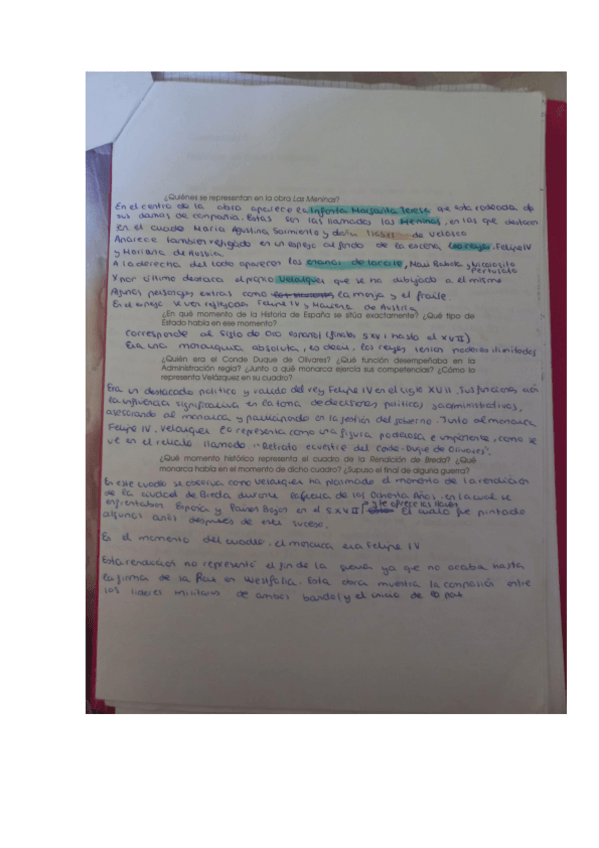 ¿Quiénes se representan en la obra Las Meninas?
En el centro de la obra aparece la Infanta Margarita Teresa que esta rodeada de
sus damas de compañia. Estas son las llamadas las Meninas, en las que destacan
en el cuadro Maria Agustina Sarmiento y doña Isabel de Velasco
Aparece tambien reflejado en un espejo al fondo de la escena, los reyes, Felipe IV
y Mariana de Austria.
A la derecha del todo aparecen los enanos de la corte, Mari Barbola y Nicolasito
Pertusato
Y por último destaca el propio Velázquez que se ha dibujado a el mismo
Algunos personajes extras como la monja y el fraile.
En el espejo se ven reflejados Felipe IV y Mariana de Austria
¿En qué momento de la Historia de España se sitúa exactamente? ¿Qué tipo de
Estado había en ese momento?
Corresponde al Siglo de Oro español (finales S XVI hasta el XVII)
Era una monarquia absoluta, es decir, los reyes tenian poderes ilimitados
¿Quién era el Conde Duque de Olivares? ¿Qué función desempeñaba en la
Administración regia? ¿Junto a qué monarca ejercía sus competencias? ¿Cómo lo
representa Velázquez en su cuadro?
Era un destacado politico y valido del rey Felipe IV en el siglo XVII. Sus funciones son
la influencia significativa en la toma de decisiones politicas y administrativas,
asesorando al monarca y participando en la gestión del gobierno. Junto al monarca
Felipe IV. Velazquez lo representa como una figura poderosa e imponente, como se
ve en el retrato llamado "Retrato ecuestre del Conde-Duque de Olivares".
¿Qué momento histórico representa el cuadro de la Rendición de Breda? ¿Qué
monarca había en el momento de dicho cuadro? ¿Supuso el final de alguna guerra?
En este cuadro se observa como Velazquez ha plasmado el momento de la rendición
de la ciudad de Breda durante la Guerra de los Ochenta Años, en la cual se
enfrentaban España y Paises Bajos en el S XVII y se ofrece las llaves
El cuadro fue pintado
algunos años despues de este suceso.
Es el momento del cuadro, el monarca era Felipe IV
Esta rendición no representó el fin de la guerra ya que no acaba hasta
la firma de la Paz en Westfalia. Esta obra muestra la compasión entre
los lideres militares de ambos bandos y el inicio de la paz